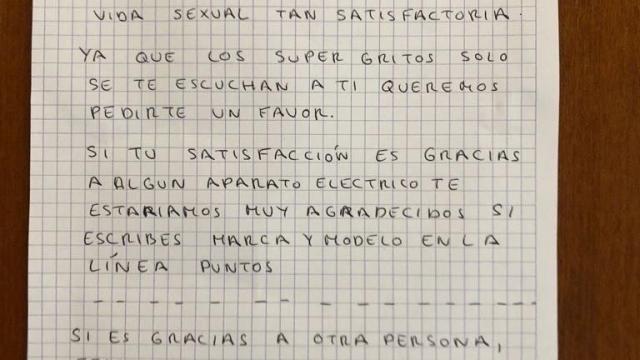 VIDA SEXUAL TAN SATISFACTORIA.
YA QUE LOS SUPER GRITOS SOLO
SE TE ESCUCHAN A TI QUEREMOS
PEDIRTE UN FAVOR.
SI TU SATISFACCIÓN ES GRACIAS
A ALGUN APARATO ELECTRICO TE
ESTARIAMOS MUY AGRADECIDOS SI
ESCRIBES MARCA Y MODELO EN LA
LÍNEA PUNTOS
SI ES GRACIAS A OTRA PERSONA,